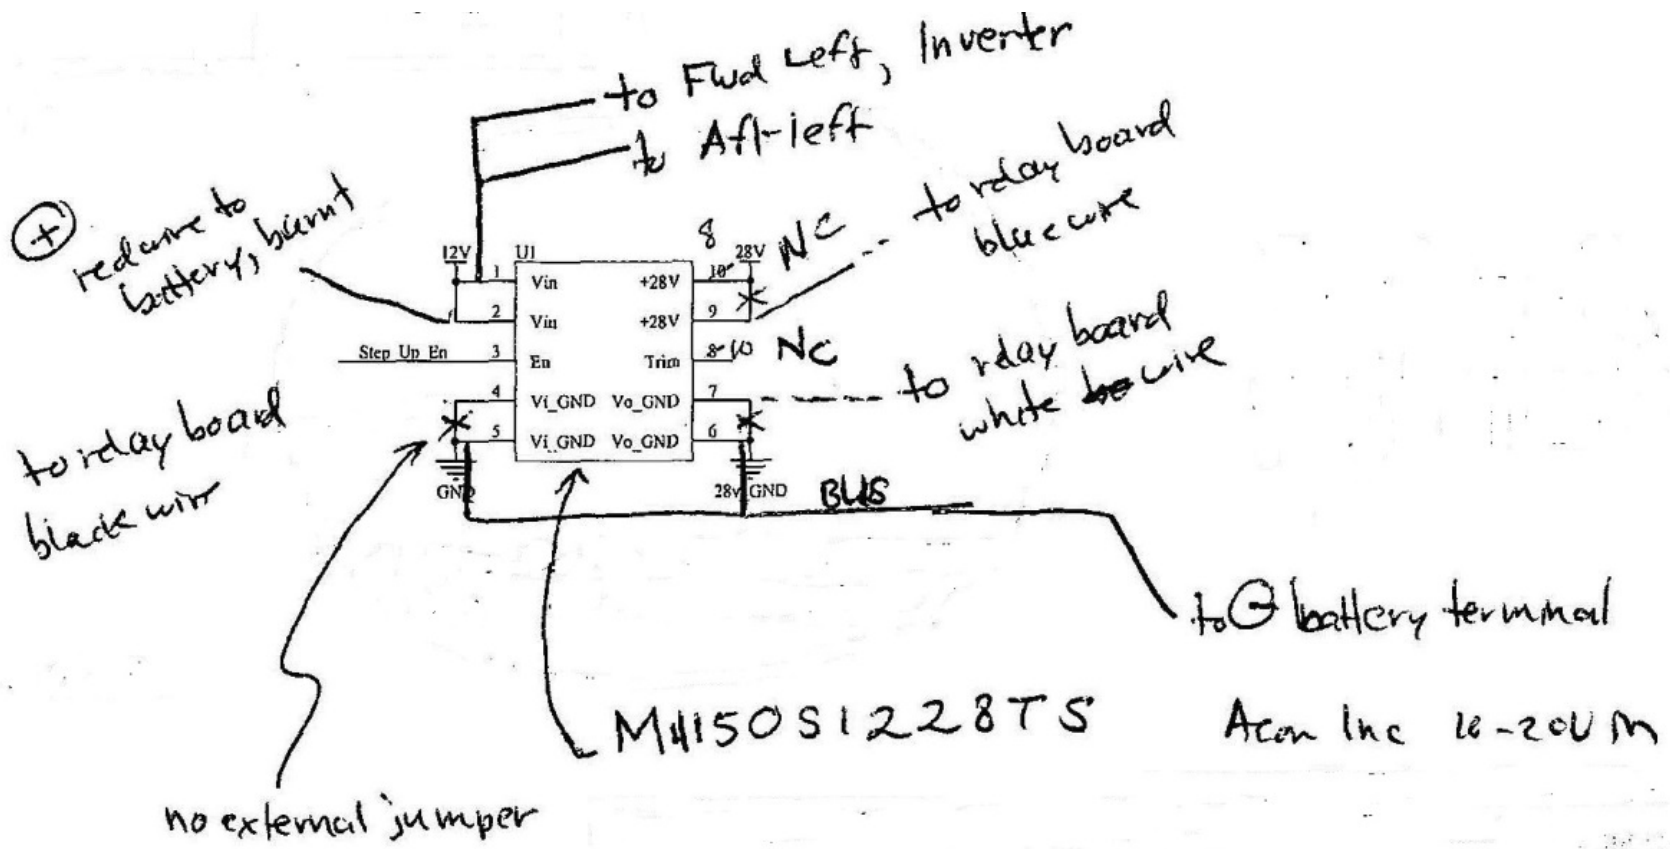 to Fwd Left, Inverter
to Aft-left
+
red wire to
battery, burnt
to relay board
blue wire
8
NC
12V
U1
28V
1
Vin
+28V
10
2
Vin
+28V
9
Step_Up_En
3
En
Trim
8 10
NC
4
Vi_GND
Vo_GND
7
5
Vi_GND
Vo_GND
6
to relay board
white wire
to relay board
black wire
GND
28v_GND
BUS
to - battery terminal
M4150S1228TS
Acon Inc
no external jumper